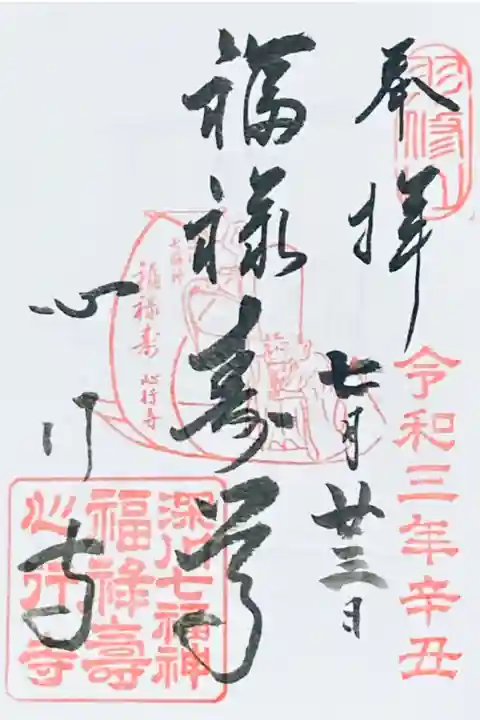 奉拝
令和三年辛丑
七月廿三日
福禄寿尊
七福神
福禄寿
心行寺
心行寺
深川七福神
福禄寿
心行寺